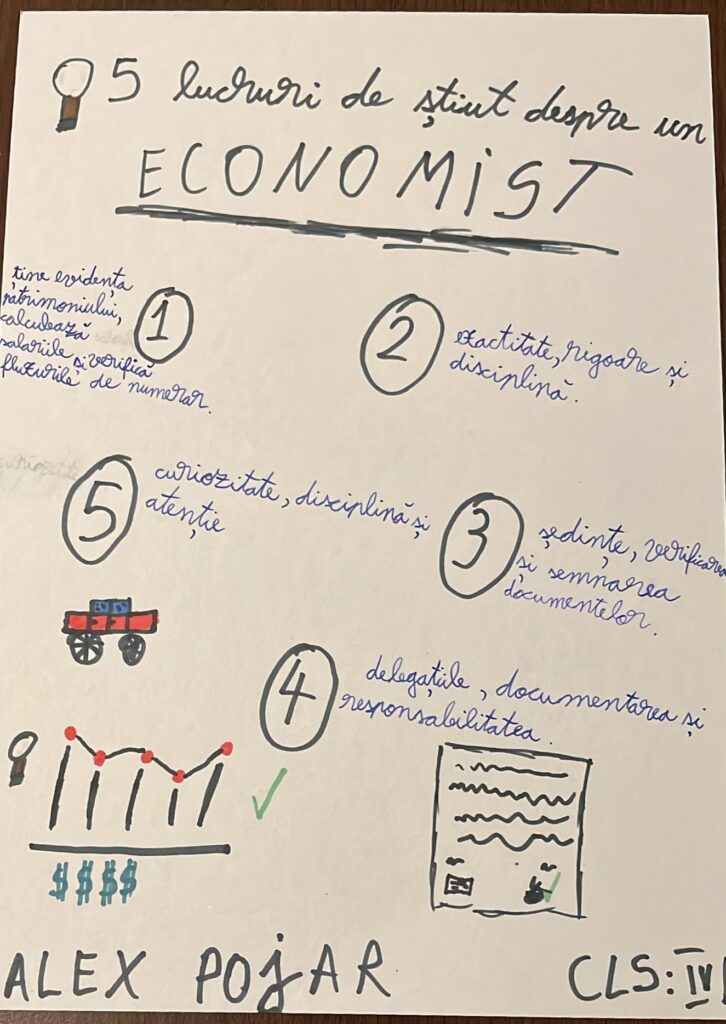 5 lucruri de știut despre un
ECONOMIST
1
ține evidența
patrimoniului,
calculează
salariile și verifică
fluxurile de numerar.
2
exactitate, rigoare și
disciplină.
3
ședințe, verificarea
și semnarea
documentelor.
4
delegațiile, documentarea și
responsabilitatea.
5
curiozitate, disciplină și
atenție
$ $ $ $
ALEX POJAR
CLS: IV